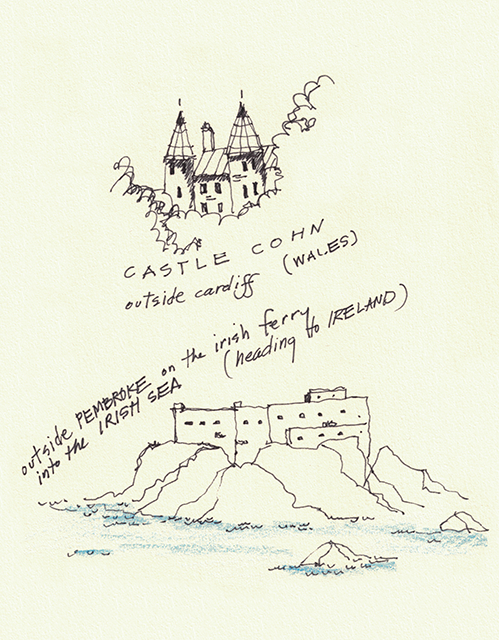 CASTLE COHN
outside cardiff (WALES)
outside PEMBROKE on the irish ferry
into the IRISH SEA (heading to IRELAND)